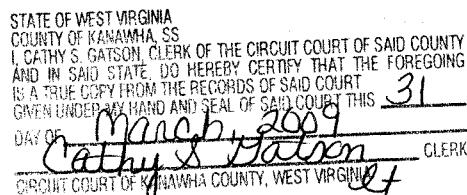 STATE OF WEST VIRGINIA
COUNTY OF KANAWHA, SS
I, CATHY S. GATSON, CLERK OF THE CIRCUIT COURT OF SAID COUNTY
AND IN SAID STATE, DO HEREBY CERTIFY THAT THE FOREGOING
IS A TRUE COPY FROM THE RECORDS OF SAID COURT
GIVEN UNDER MY HAND AND SEAL OF SAID COURT THIS 31
DAY OF March, 2009
Cathy S Gatson CLERK
CIRCUIT COURT OF KANAWHA COUNTY, WEST VIRGINIA